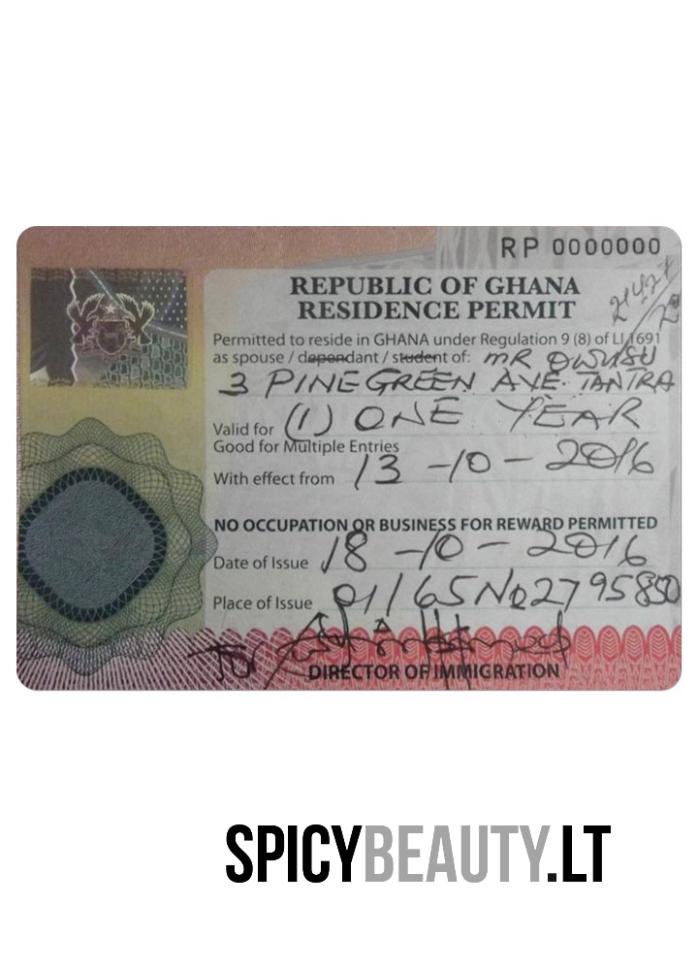 RP 0000000
REPUBLIC OF GHANA
RESIDENCE PERMIT
Permitted to reside in GHANA under Regulation 9 (8) of LI 1691
as spouse / dependant / student of: MR OWUSU
3 PINEGREEN AVE. TANTRA
Valid for (1) ONE YEAR
Good for Multiple Entries
With effect from 13-10-2016
NO OCCUPATION OR BUSINESS FOR REWARD PERMITTED
Date of Issue 18-10-2016
Place of Issue 01/65No2795850
DIRECTOR OF IMMIGRATION
SPICYBEAUTY.LT